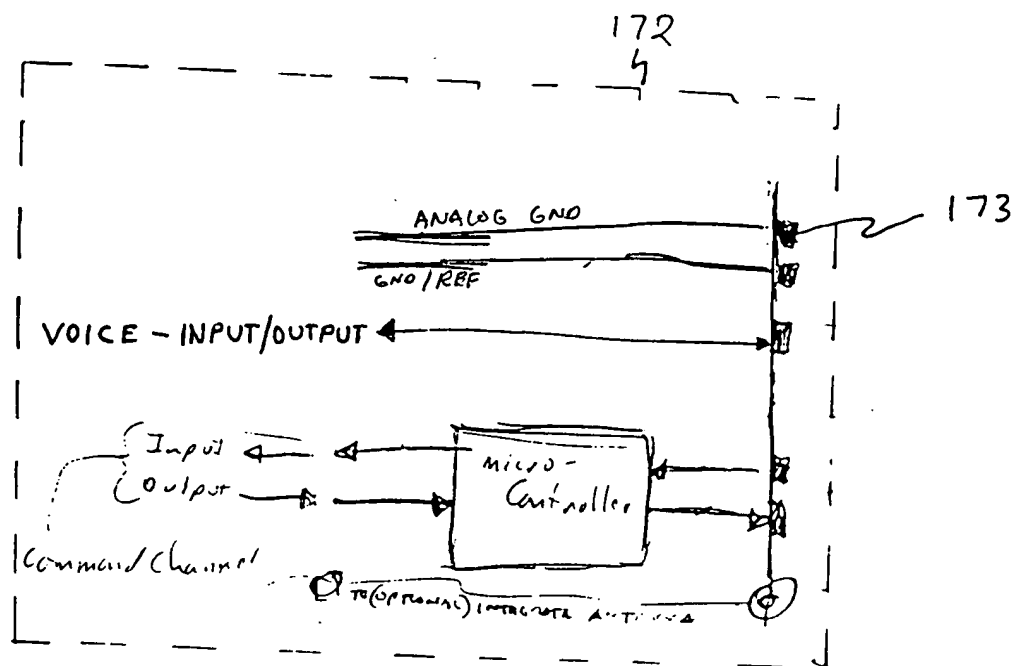 172
ANALOG GND
173
GND/REF
VOICE - INPUT/OUTPUT
Input
Output
Micro-
Controller
Command Channel
TO (OPTIONAL) INTEGRATE ANTENNA